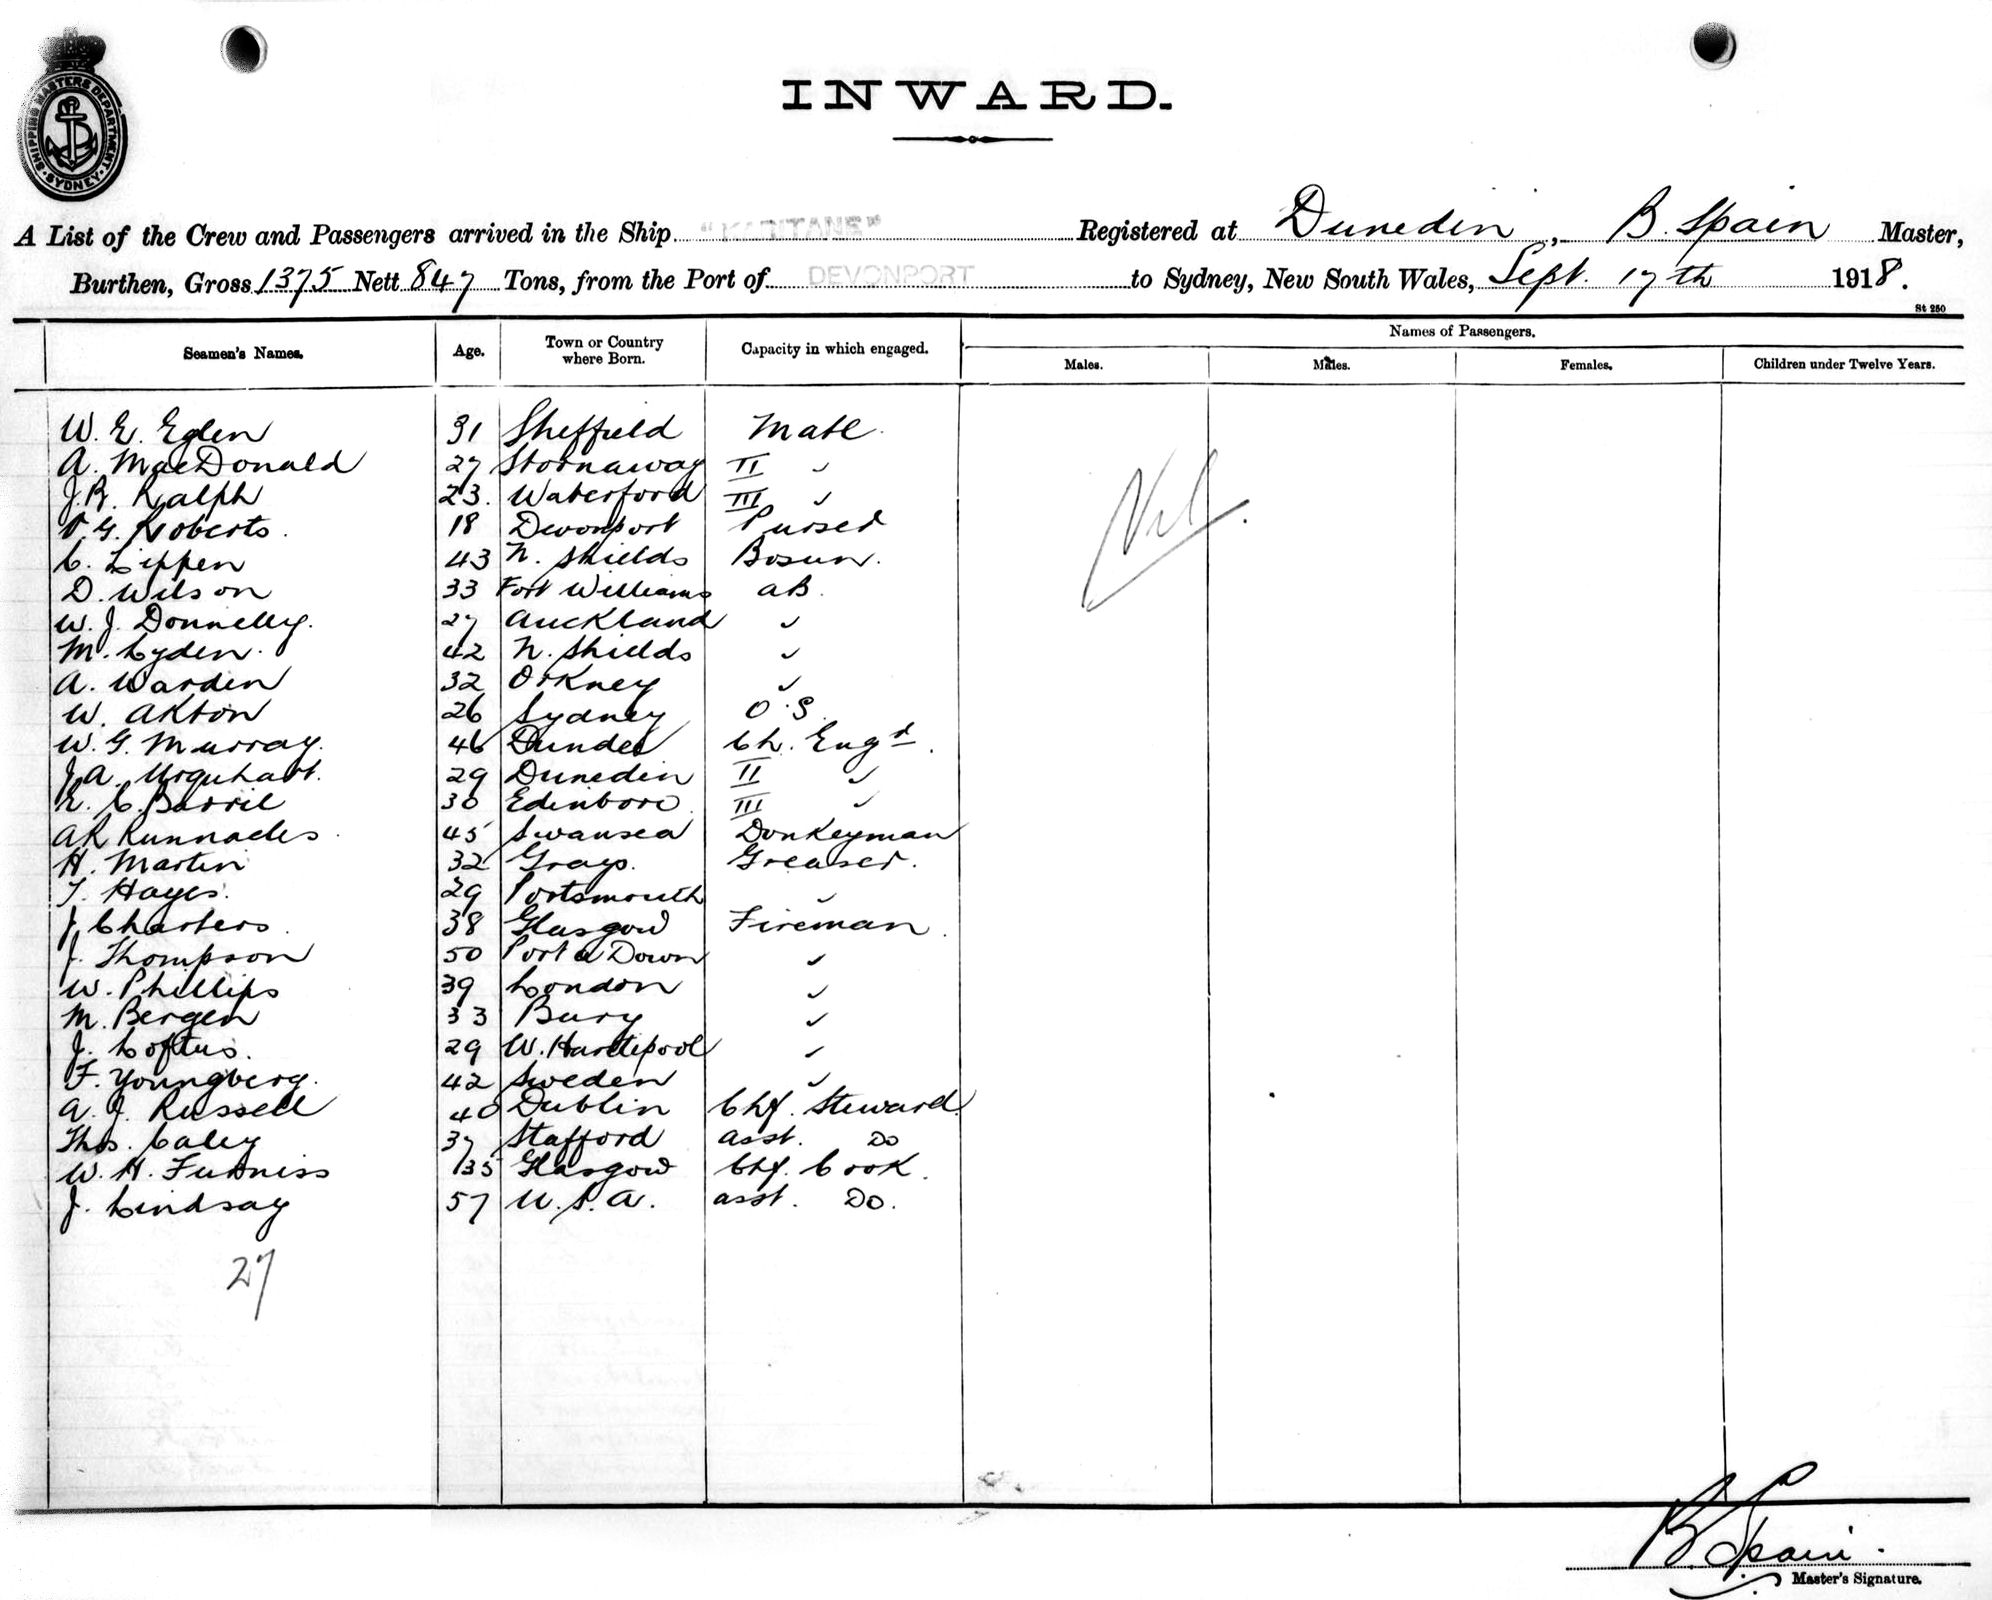 SHIPPING MASTERS DEPARTMENT · SYDNEY ·
INWARD.
A List of the Crew and Passengers arrived in the Ship "KARITANE" Registered at Dunedin, B. Spain Master,
Burthen, Gross 1375 Nett 847 Tons, from the Port of DEVONPORT to Sydney, New South Wales, Sept. 17th 1918.
St 250
Seamen's Names. Age. Town or Country where Born. Capacity in which engaged. Names of Passengers.
Males. Males. Females. Children under Twelve Years.
W. E. Eglen 31 Sheffield Mate.
A. MacDonald 27 Stornaway II ✓
J. R. Ralph 23. Waterford III ✓
G. Roberts. 18 Devonport Purser
C. Lippen 43 N. Shields Bosun.
D. Wilson 33 Fort Williams AB.
W. J. Donnelly. 27 Auckland ✓
M. Lyden. 42 N. Shields ✓
A. Warden 32 Orkney ✓
W. Akton 26 Sydney O.S.
W. G. Murray. 46 Dundee Ch. Engr.
J. A. Urquhart. 29 Dunedin II ✓
C. Barril 30 Edinboro. III ✓
AR Runnacles. 45 Swansea Donkeyman
H. Martin 32 Grays. Greaser.
T. Hayes. 29 Portsmouth ✓
J. Charters. 38 Glasgow Fireman.
J. Thompson 50 Port a Down ✓
W. Phillips 39 London ✓
M. Bergen 33 Bury ✓
J. Loftus. 29 W. Hartlepool ✓
F. Youngberg. 42 Sweden ✓
A. J. Russell 40 Dublin Chf. Steward.
Thos. Caley 37 Stafford Asst. Do
W. H. Furniss 35 Glasgow Chf. Cook.
J. Lindsay 57 U.S.A. Asst. Do.
Nil.
27
B Spain.
Master's Signature.